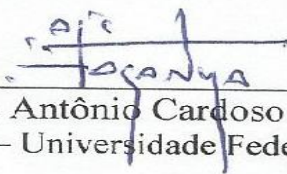 Antônio Cardoso
– Universidade Fede